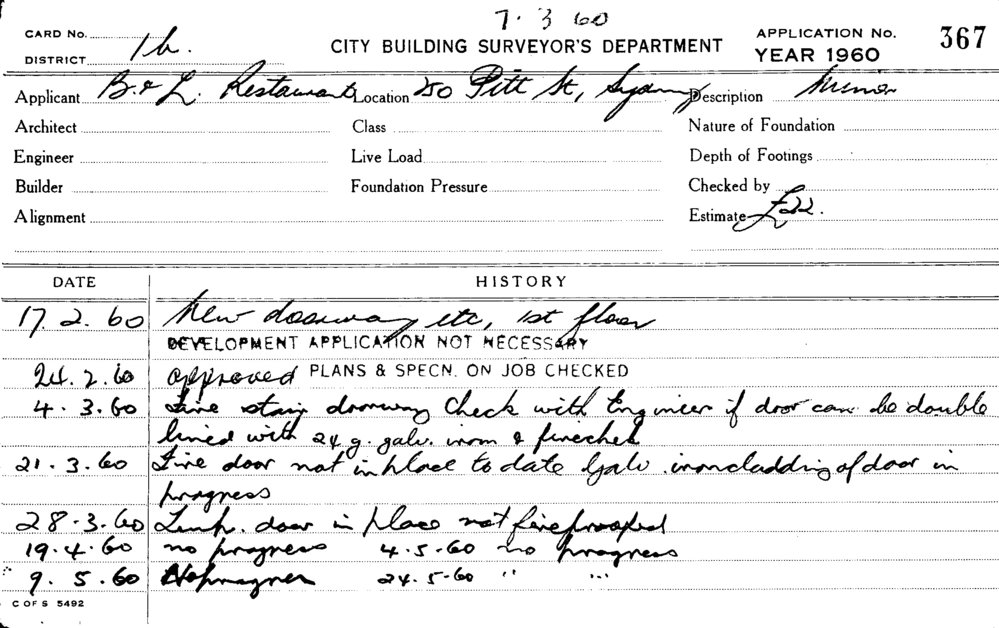 7. 3 60
CARD No.
DISTRICT 1b.
CITY BUILDING SURVEYOR'S DEPARTMENT
APPLICATION No. 367
YEAR 1960
Applicant B. & L. Restaurant Location 250 Pitt St, Sydney Description Minor
Architect Class Nature of Foundation
Engineer Live Load Depth of Footings
Builder Foundation Pressure Checked by
Alignment Estimate £22.
DATE HISTORY
17. 2. 60 New doorway etc, 1st floor
DEVELOPMENT APPLICATION NOT NECESSARY
24. 2. 60 approved PLANS & SPECN. ON JOB CHECKED
4. 3. 60 Fire stair doorway Check with Engineer if door can be double
lined with 24 g. galv. iron & firechek
21. 3. 60 Fire door not in place to date Galv. iron cladding of door in
progress
28. 3. 60 Temp. door in place not fireproofed
19. 4. 60 no progress 4. 5. 60 no progress
9. 5. 60 No progress 24. 5. 60 " "
C OF S 5492